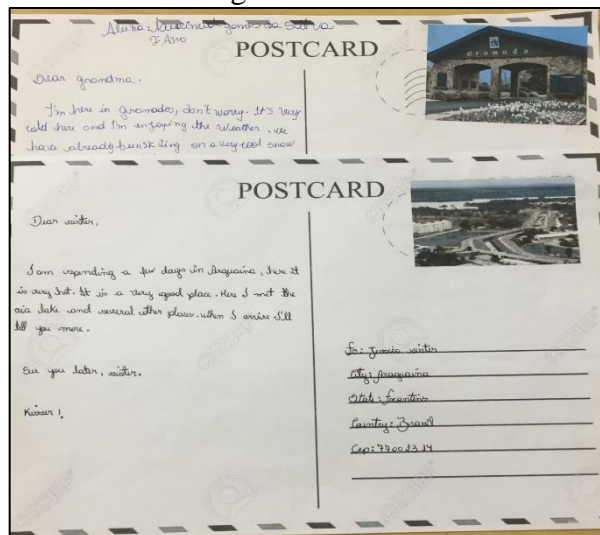 Aluna: gomes da Silva
7º Ano
POSTCARD
Gramado
Dear grandma.
I'm here in gramados, don't worry. It's very
cold here and I'm enjoying the weather. we
have already on a very cool snow
POSTCARD
Dear sister,
I am spending a few days in Araguaína, here it
is very hot. It is a very good place. Here I met the
via lake and several other places. when I arrive I'll
tell you more.
See you later, sister.
Kisses!
To: Jessica sister
City: Araguaína
State: Tocantins
Country: Brasil
Cep: 77002314